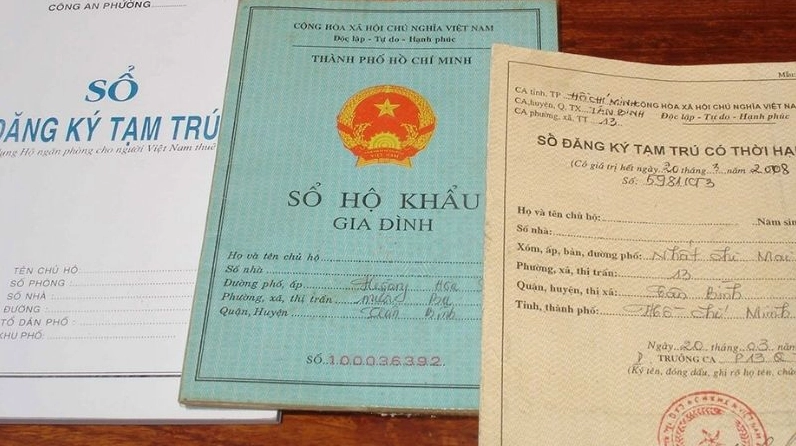 CÔNG AN PHƯỜNG:
SỔ
ĐĂNG KÝ TẠM TRÚ
Hộ ngăn phòng cho người Việt Nam thuê
TÊN CHỦ HỘ
SỐ PHÒNG
SỐ NHÀ
ĐƯỜNG
TỔ DÂN PHỐ
KHU PHỐ:
CỘNG HÒA XÃ HỘI CHỦ NGHĨA VIỆT NAM
Độc lập - Tự do - Hạnh phúc
THÀNH PHỐ HỒ CHÍ MINH
VIỆT NAM
SỔ HỘ KHẨU
GIA ĐÌNH
Họ và tên chủ hộ
Số nhà
Đường phố, ấp
Phường, xã, thị trấn
Quận, Huyện
SỐ 100036392
Mẫu
CA tỉnh, TP HỒ CHÍ MINH
CA huyện, Q, TX TÂN BÌNH
CA phường, xã, TT 13
CỘNG HÒA XÃ HỘI CHỦ NGHĨA VIỆT NAM
Độc lập - Tự do - Hạnh phúc
SỔ ĐĂNG KÝ TẠM TRÚ CÓ THỜI HẠ
(Có giá trị hết ngày 20 tháng 3 năm 2008
Số:
Họ và tên chủ hộ: Năm sin
Số nhà:
Xóm, ấp, bản, đường phố: Nhất Chi Mai
Phường, xã, thị trấn: 13
Quận, huyện, thị xã: Tân Bình
Tỉnh, thành phố: Hồ Chí Minh
Ngày 20 tháng 03 năm
TRƯỞNG CA P13 Q
(Ký tên, đóng dấu, ghi rõ họ tên, chức